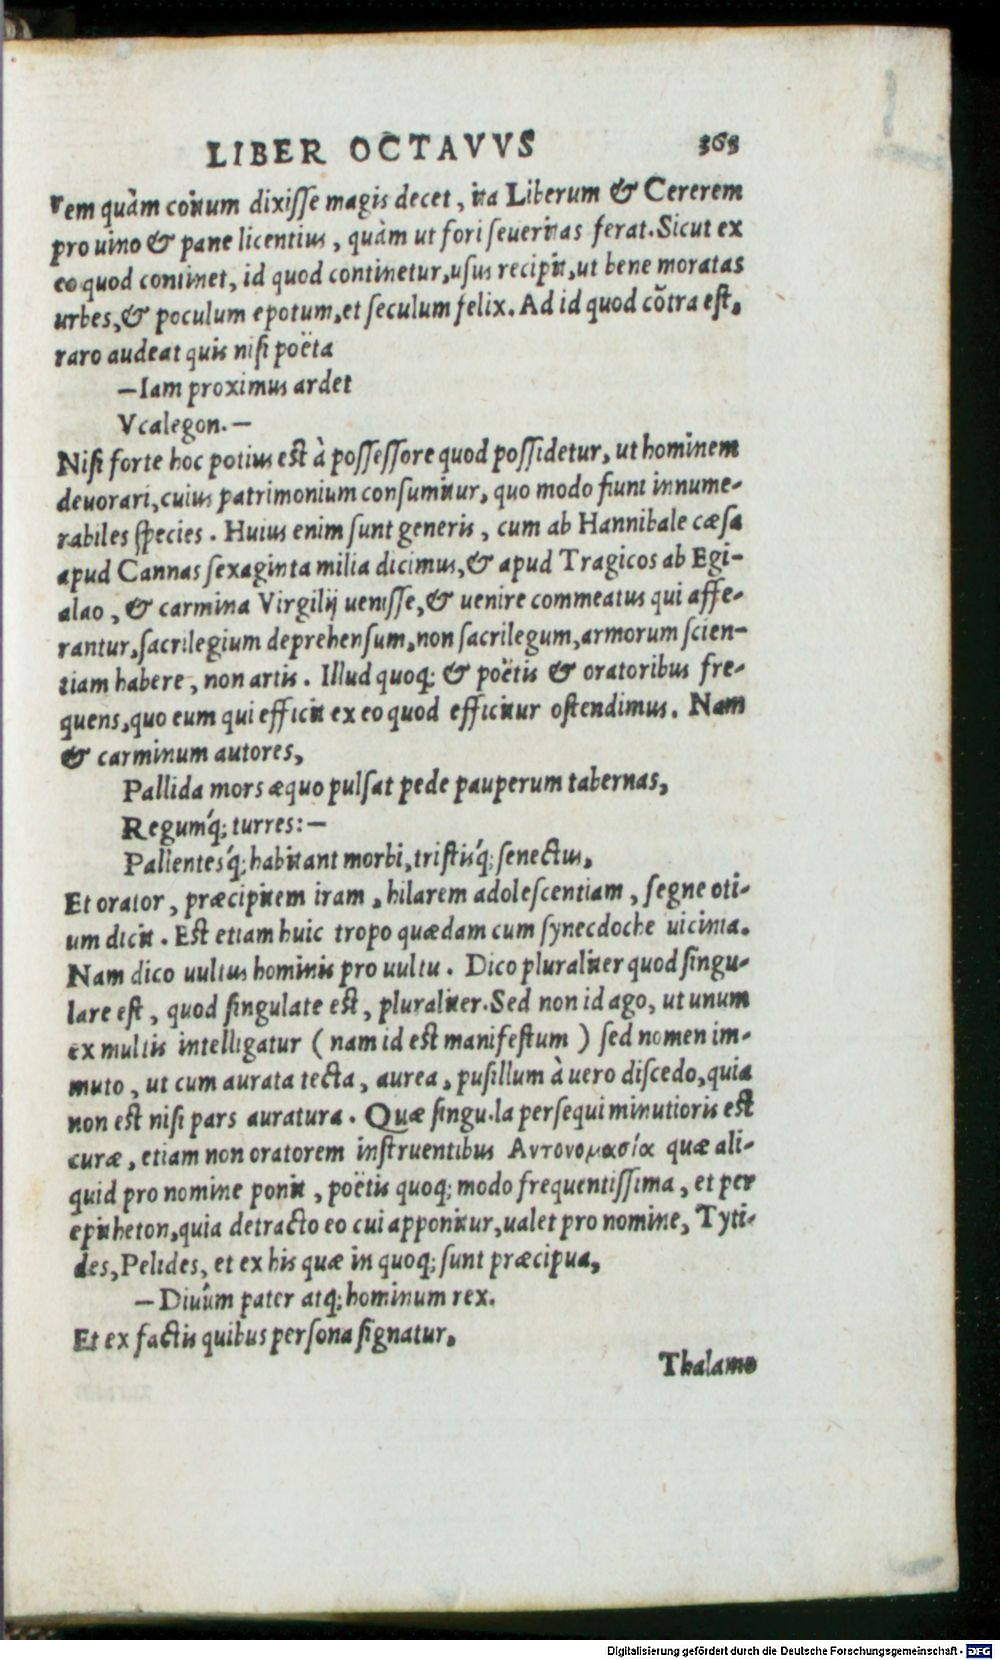 LIBER OCTAVVS 363
rem quàm coitum dixiſſe magis decet, ita Liberum & Cererem
pro uino & pane licentius, quàm ut fori ſeueritas ferat. Sicut ex
eo quod continet, id quod continetur, uſus recipit, ut bene moratas
urbes, & poculum epotum, et ſeculum felix. Ad id quod cõtra eſt,
raro audeat quis niſi poëta
—Iam proximus ardet
Vcalegon.—
Niſi forte hoc potius eſt à poſſeſſore quod poſſidetur, ut hominem
deuorari, cuius patrimonium conſumitur, quo modo fiunt innume-
rabiles ſpecies. Huius enim ſunt generis, cum ab Hannibale cæſa
apud Cannas ſexaginta milia dicimus, & apud Tragicos ab Egi-
alao, & carmina Virgilij ueniſſe, & uenire commeatus qui affe-
rantur, ſacrilegium deprehenſum, non ſacrilegum, armorum ſcien-
tiam habere, non artis. Illud quoq; & poëtis & oratoribus fre-
quens, quo eum qui efficit ex eo quod efficitur oſtendimus. Nam
& carminum autores,
Pallida mors æquo pulſat pede pauperum tabernas,
Regumq́; turres:—
Pallentesq́; habitant morbi, triſtisq́; ſenectus,
Et orator, præcipitem iram, hilarem adoleſcentiam, ſegne oti-
um dicit. Eſt etiam huic tropo quædam cum ſynecdoche uicinia.
Nam dico uultus hominis pro uultu. Dico pluraliter quod ſingu-
lare eſt, quod ſingulate eſt, pluraliter. Sed non id ago, ut unum
ex multis intelligatur (nam id eſt manifeſtum) ſed nomen im-
muto, ut cum aurata tecta, aurea, puſillum à uero diſcedo, quia
non eſt niſi pars auratura. Quæ ſingu.la perſequi minutioris eſt
curæ, etiam non oratorem inſtruentibus Αντονομασία quæ ali-
quid pro nomine ponit, poëtis quoq; modo frequentiſſima, et per
epitheton, quia detracto eo cui apponitur, ualet pro nomine, Tyti-
des, Pelides, et ex his quæ in quoq; ſunt præcipua,
—Diuûm pater atq; hominum rex.
Et ex factis quibus perſona ſignatur,
Thalamo
Digitalisierung gefördert durch die Deutsche Forschungsgemeinschaft - DFG